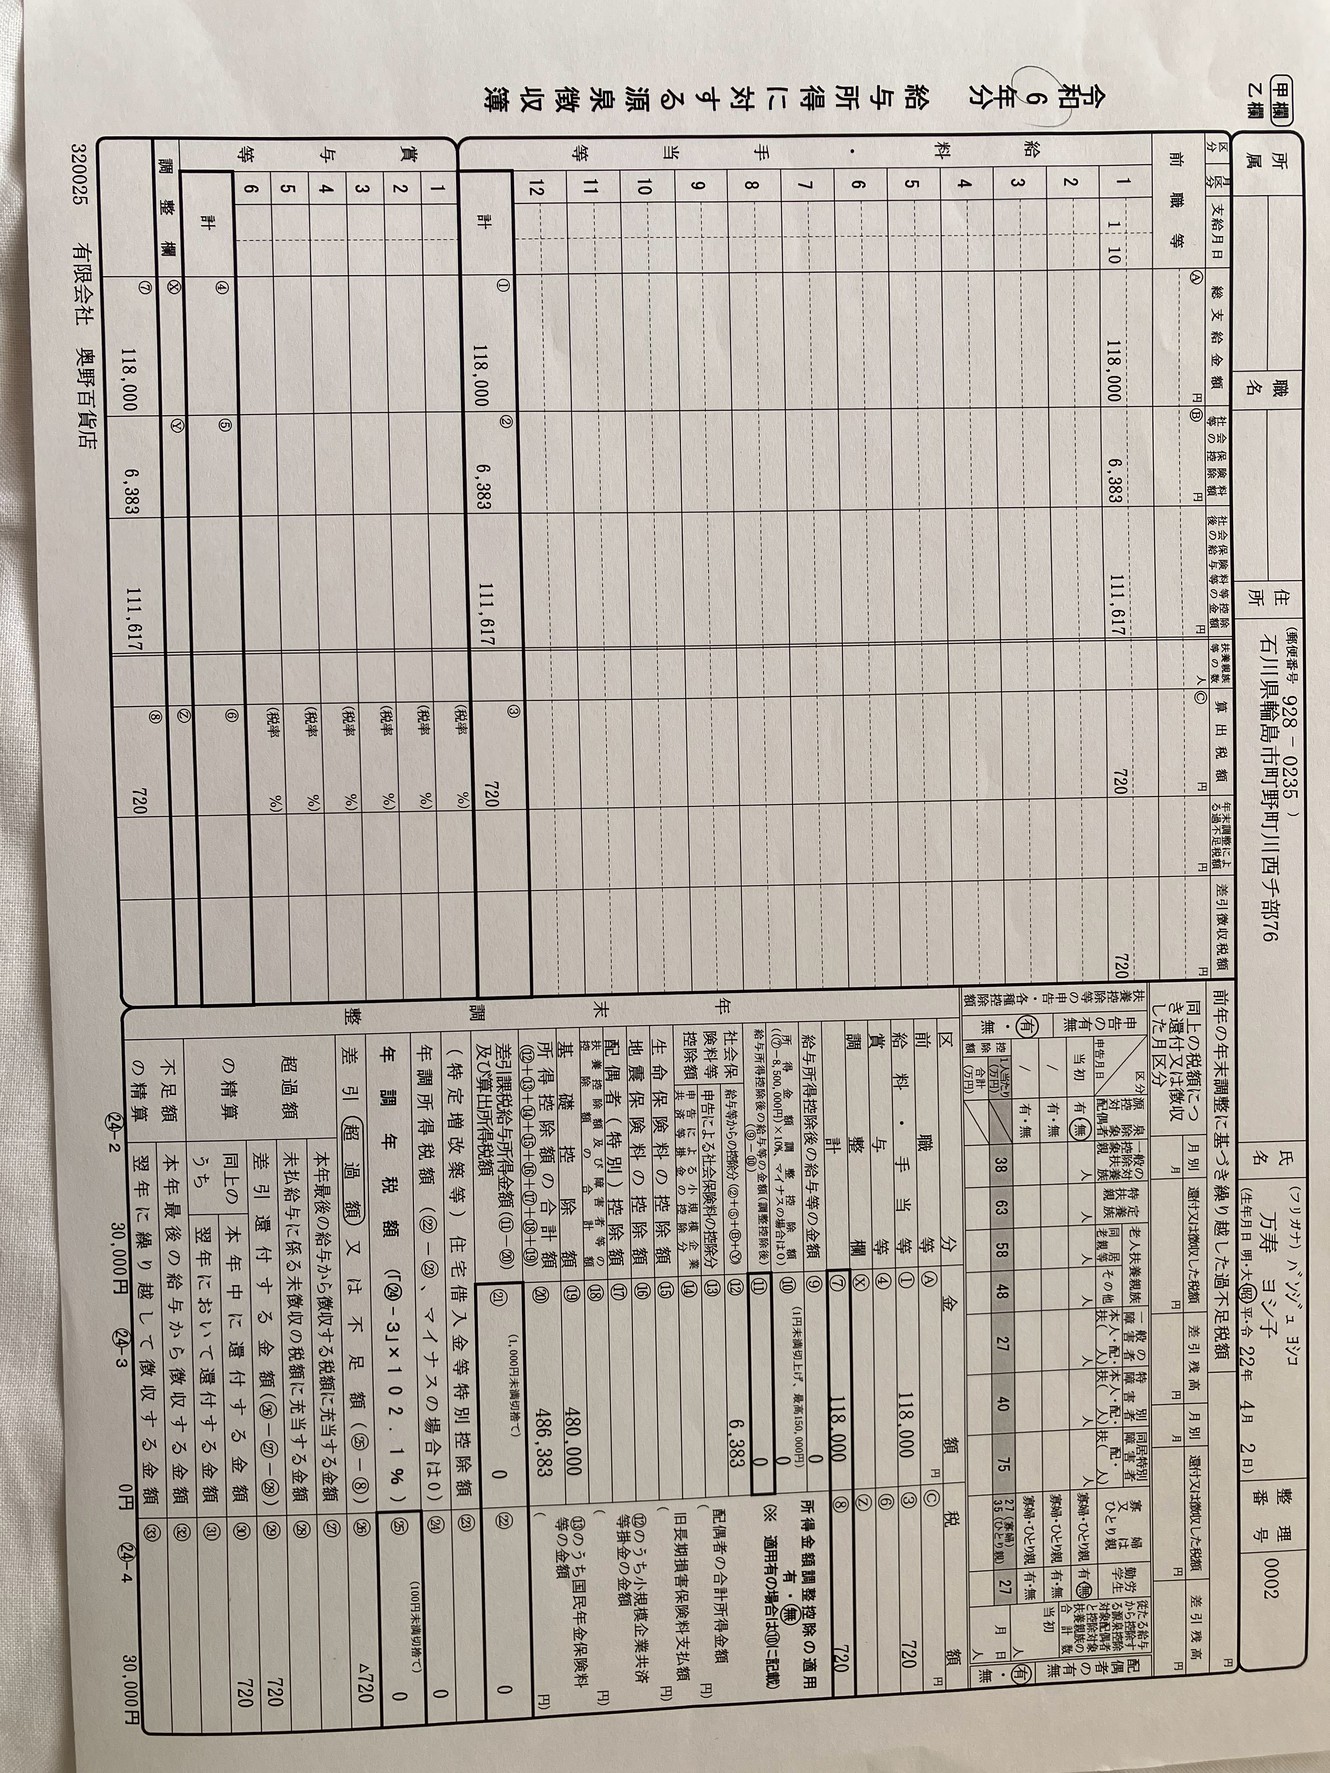 甲欄
乙欄
所属
職名
住所
(郵便番号 928-0235 )
石川県輪島市町野町川西チ部76
氏名
(フリガナ) バンジュ ヨシコ
万寿 ヨシ子
(生年月日 明・大・昭・平・令 22年 4月 2日)
整理番号
0002
令和6年分 給与所得に対する源泉徴収簿
区分
月区分
支給月日
総支給金額
社会保険料等の控除額
社会保険料等控除後の給与等の金額
扶養親族等の数
算出税額
年末調整による過不足税額
差引徴収税額
前職等
Ⓐ 円
Ⓑ 円
円
人
Ⓒ 円
円
円
給料・手当等
1 1 10 118,000 6,383 111,617 720 720
2
3
4
5
6
7
8
9
10
11
12
計 ① 118,000 ② 6,383 111,617 ③ 720
賞与等
1 (税率 %)
2 (税率 %)
3 (税率 %)
4 (税率 %)
5 (税率 %)
6 (税率 %)
計 ④ ⑤ ⑥
調整欄 Ⓧ Ⓨ Ⓩ
⑦ 118,000 ⑧ 6,383 111,617 720
320025 有限会社 奥野百貨店
前年の年末調整に基づき繰り越した過不足税額 円
同上の税額につき還付又は徴収した月区分
月別 還付又は徴収した税額 差引残高 月別 還付又は徴収した税額 差引残高
月 円 円 月 円 円
扶養控除等の申告・各種控除額
申告の有無
有・無
区分
申告月日
源泉控除対象配偶者
一般の控除対象扶養親族
特定扶養親族
老人扶養親族
同居老親等
その他
一般の障害者
本人・配・扶( 人)
特別障害者
本人・配・扶( 人)
同居特別障害者
配・扶( 人)
寡婦又はひとり親
勤労学生
従たる給与から控除する源泉控除対象配偶者と控除対象扶養親族の合計数
配偶者の有無
当初 有・無 人 人 人 人 寡婦・ひとり親 有・無 当初 人 有・無
/ 有・無 寡婦・ひとり親 有・無
/ 有・無 寡婦・ひとり親 有・無 月 日 人
控除額 1人当たり(万円) 38 63 58 48 27 40 75 27(寡婦) 35(ひとり親) 27
合計(万円)
年末調整
区分 金額 税額
前職等 Ⓐ 円 Ⓒ 円
給料・手当等 ① 118,000 ③ 720
賞与等 ④ ⑥
調整欄 Ⓧ Ⓩ
計 ⑦ 118,000 ⑧ 720
給与所得控除後の給与等の金額 ⑨ 0
所得金額調整控除額 ((⑦-8,500,000円)×10%、マイナスの場合は0) ⑩ (1円未満切上げ、最高150,000円) 0
給与所得控除後の給与等の金額(調整控除後) (⑨-⑩) ⑪ 0
所得金額調整控除の適用
有・無
(※ 適用有の場合は⑩に記載)
社会保険料等控除額 給与等からの控除分(②+⑤+Ⓑ+Ⓨ) ⑫ 6,383
申告による社会保険料の控除分 ⑬
申告による小規模企業共済等掛金の控除分 ⑭
生命保険料の控除額 ⑮
地震保険料の控除額 ⑯
配偶者(特別)控除額 ⑰
扶養控除額及び障害者等の控除額の合計額 ⑱
基礎控除額 ⑲ 480,000
所得控除額の合計額 (⑫+⑬+⑭+⑮+⑯+⑰+⑱+⑲) ⑳ 486,383
配偶者の合計所得金額
( 円)
旧長期損害保険料支払額
( 円)
⑫のうち小規模企業共済等掛金の金額
( 円)
⑬のうち国民年金保険料等の金額
( 円)
差引課税給与所得金額(⑪-⑳)及び算出所得税額 ㉑ (1,000円未満切捨て) 0 ㉒ 0
(特定増改築等)住宅借入金等特別控除額 ㉓
年調所得税額(㉒-㉓、マイナスの場合は0) ㉔ 0
年調年税額(「㉔-3」×102.1%) ㉕ (100円未満切捨て) 0
差引超過額又は不足額(㉕-⑧) ㉖ △720
超過額の精算
本年最後の給与から徴収する税額に充当する金額 ㉗
未払給与に係る未徴収の税額に充当する金額 ㉘
差引還付する金額(㉖-㉗-㉘) ㉙ 720
同上のうち 本年中に還付する金額 ㉚ 720
翌年において還付する金額 ㉛
不足額の精算
本年最後の給与から徴収する金額 ㉜
翌年に繰り越して徴収する金額 ㉝
㉔-2 30,000円 ㉔-3 0円 ㉔-4 30,000円